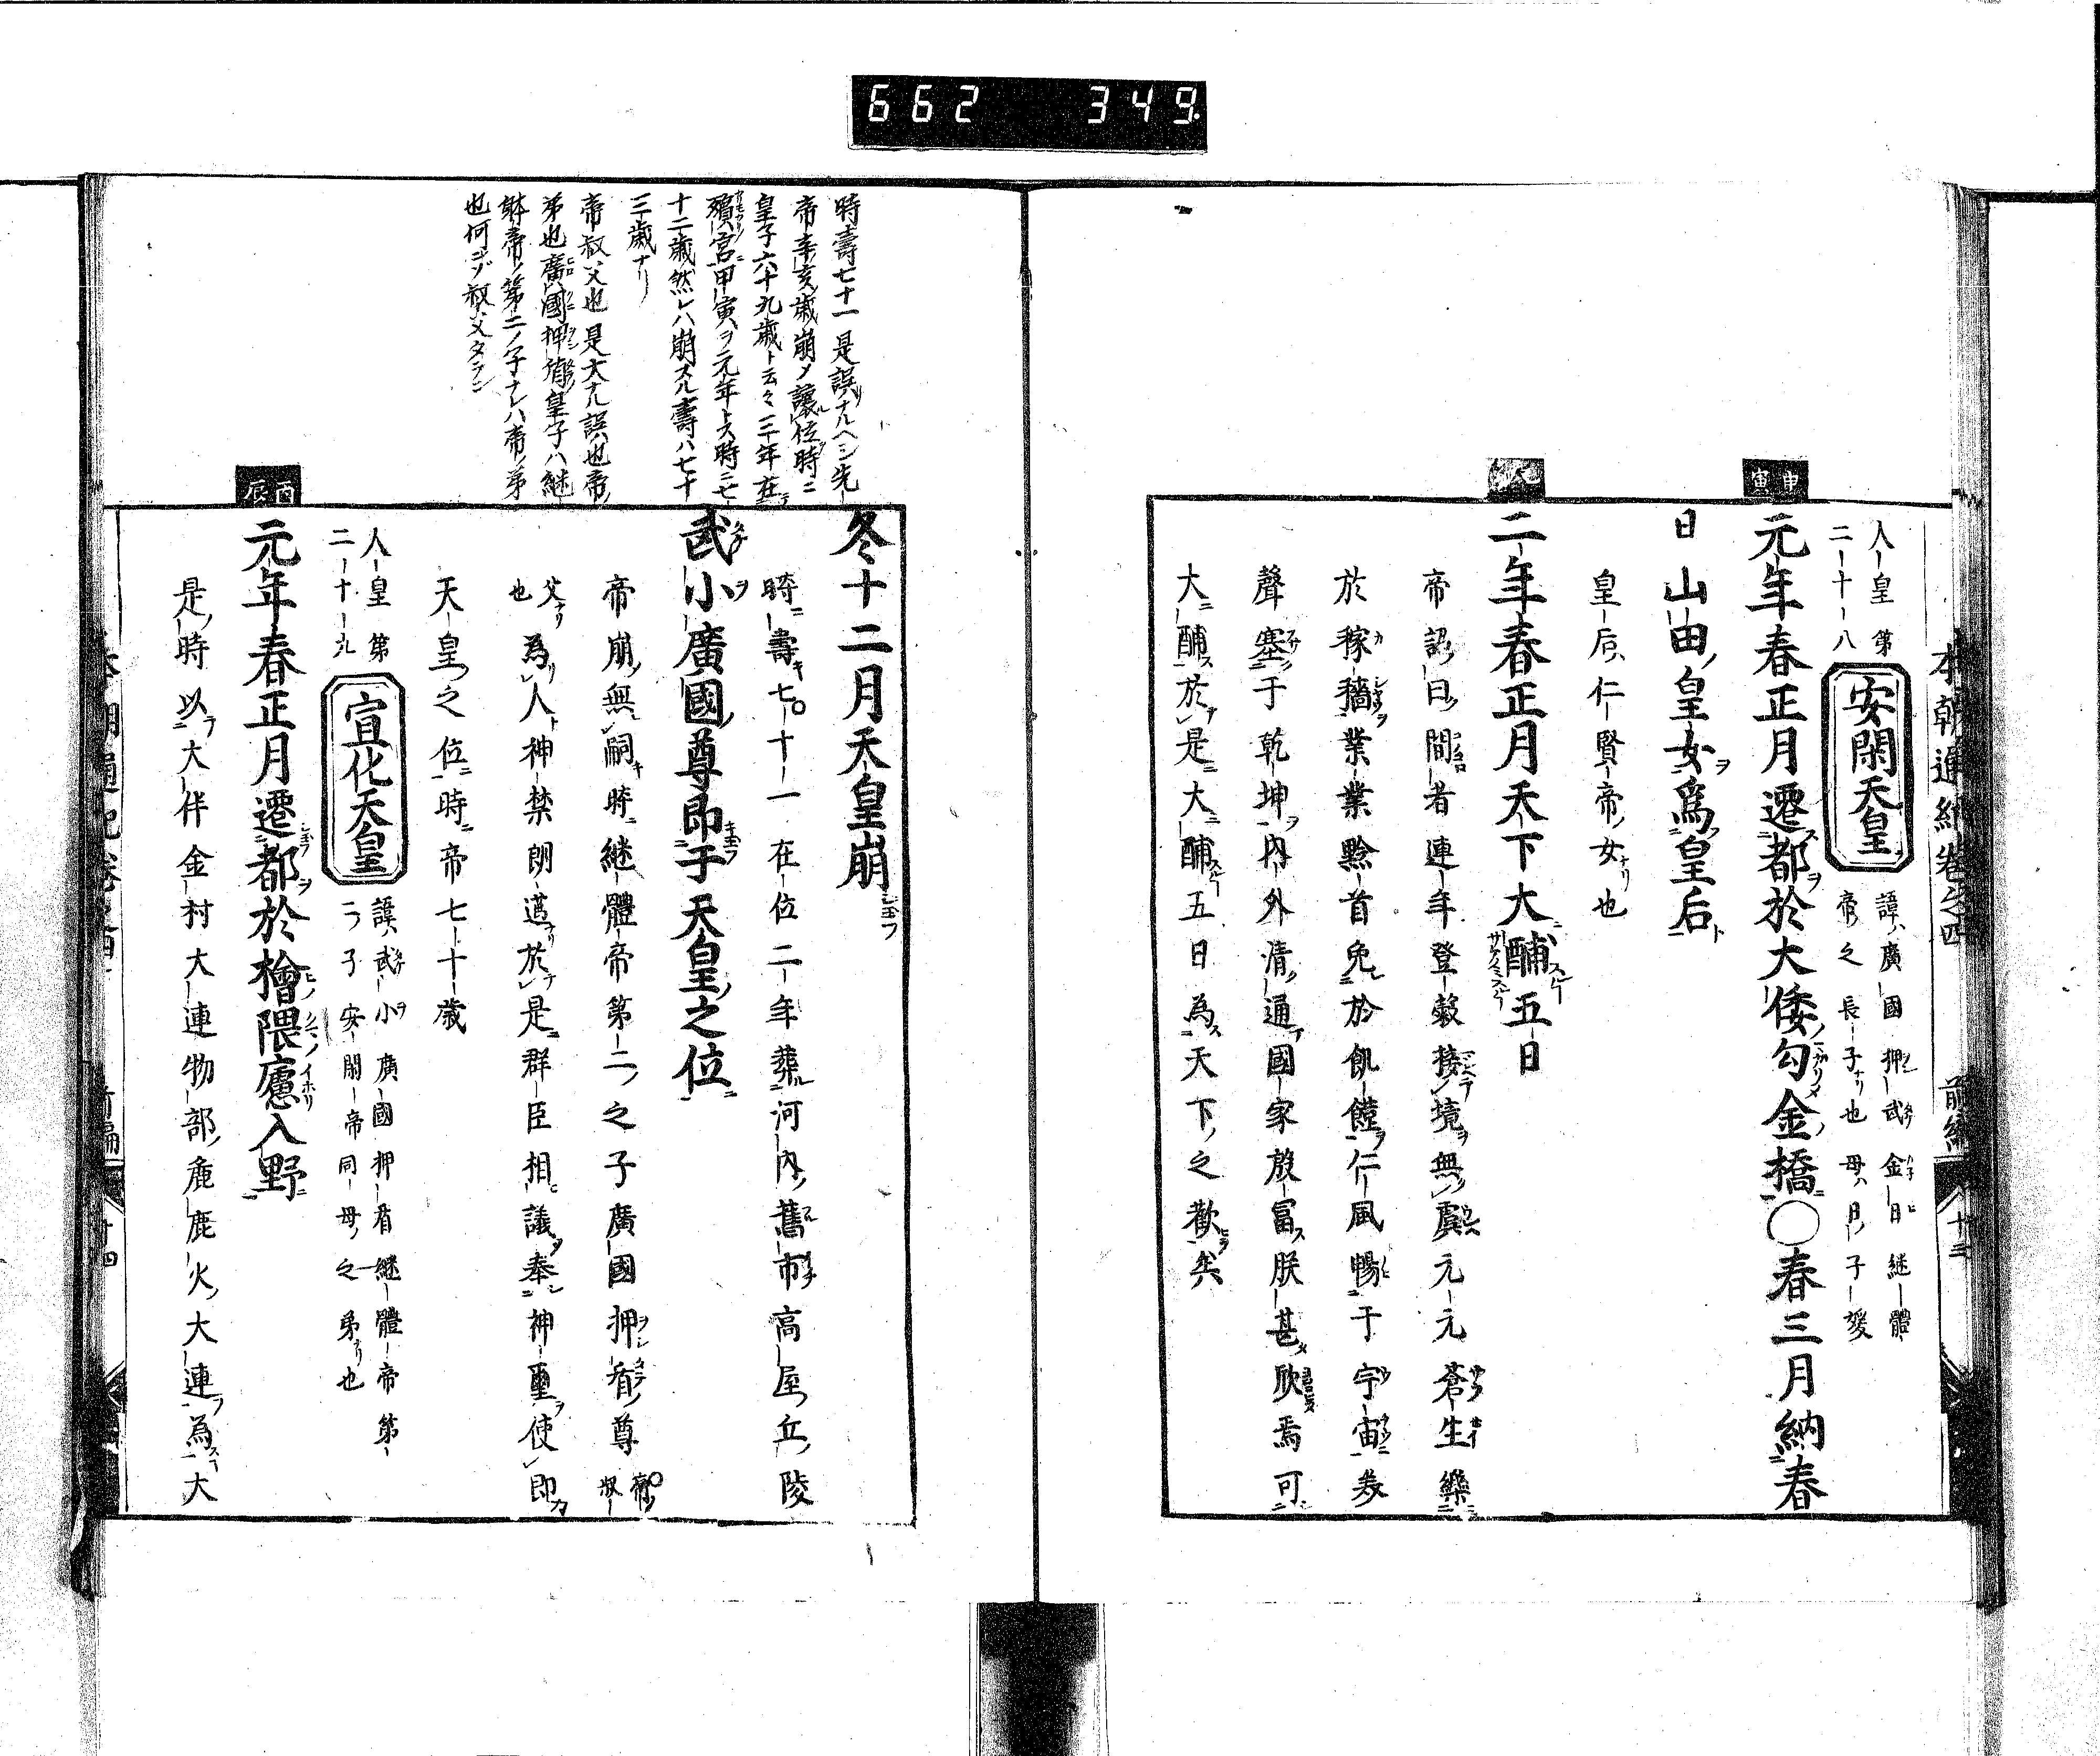 662 349
本朝通紀卷之四 前編 十三
人皇第二十八
安閑天皇
諱廣國押武金日継體
帝之長子也母日子媛
甲寅
元年春正月遷都於大倭勾金橋○春三月納春
日山田皇女爲皇后
皇后仁賢帝女也
二年春正月天下大酺五日
帝詔曰間者連年登穀接境無虞元元蒼生樂
於稼穡業業黔首免於飢饉仁風暢于宇宙美
聲塞于乾坤内外清通國家殷冨朕甚欣焉可
大酺於是大酺五日為天下之歡矣
時壽七十一是誤ナルヘシ先
帝辛亥歳崩メ讓位時ニ
皇子六十九歳ト云々二年在
殯宮甲寅ヲ元年トス時ニ七
十二歳然レハ崩スル壽ハ七十
三歳ナリ
帝叔父也是大ナル誤也帝ノ
弟也廣國押楯皇子ハ継
躰帝ノ第二ノ子ナレハ帝ノ弟
也何ニゾ叔父タラン
冬十二月天皇崩
時壽七十一在位二年葬河内舊市高屋丘陵
武小廣國尊即于天皇之位
帝崩無嗣時継體帝第二之子廣國押盾尊帝叔
父也為人神禁朗邁於是群臣相議奉神璽使即
天皇之位時帝七十歳
人皇第二十九
宣化天皇
諱武小廣國押盾継體帝第
二子安閑帝同母之弟也
丙辰
元年春正月遷都於檜隈廬入野
是時以大伴金村大連物部麁鹿火大連為大
本朝通紀卷之四 前編 十四